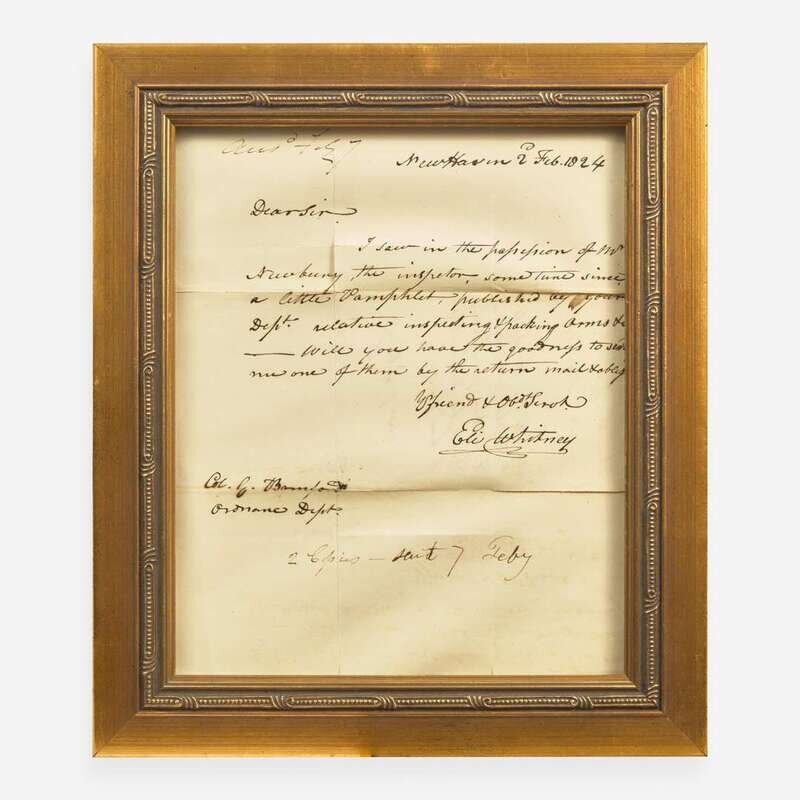 Ansd Feby 7
New Haven 2d Feb. 1824
Dear Sir
I saw in the possession of Mr
Newbury, the inspector, some time since,
a little Pamphlet, published by your
Dept. relative inspecting & packing Arms &c
— Will you have the goodness to send
me one of them by the return mail & oblige
Yr friend & Obdt Servt.
Eli Whitney
Col. G.
Ordnance Dept.
2 Copies — sent 7 Feby